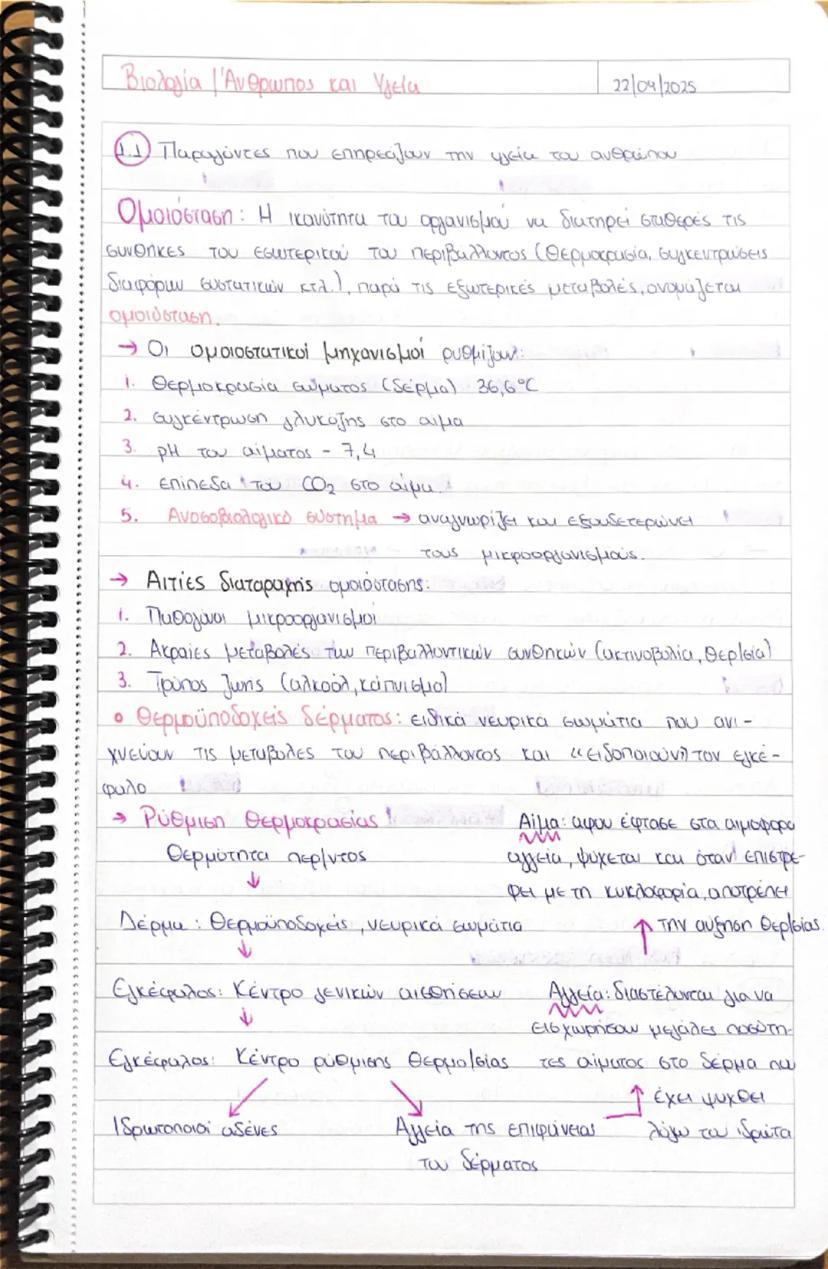 Βιολογία | Άνθρωπος και Υγεία
22/04/2025
1.1 Παράγοντες που επηρεάζουν την υγεία του ανθρώπου
Ομοιόσταση: Η ικανότητα του οργανισμού να διατηρεί σταθερές τις
συνθήκες του εσωτερικού του περιβάλλοντος (θερμοκρασία, συγκεντρώσεις
διαφόρων συστατικών κτλ.), παρά τις εξωτερικές μεταβολές, ονομάζεται
ομοιόσταση.
→ Οι ομοιοστατικοί μηχανισμοί ρυθμίζουν:
1. Θερμοκρασία σώματος (δέρμα) 36,6°C
2. συγκέντρωση γλυκόζης στο αίμα
3. pH του αίματος - 7,4
4. επίπεδα του CO2 στο αίμα.
5. Ανοσοβιολογικό σύστημα → αναγνωρίζει και εξουδετερώνει
τους μικροοργανισμούς.
→ Αιτίες διαταραχής ομοιόστασης:
1. Παθογόνοι μικροοργανισμοί
2. Ακραίες μεταβολές των περιβαλλοντικών συνθηκών (ακτινοβολία, θερ/σία)
3. Τρόπος ζωής (αλκοόλ, κάπνισμα)
• Θερμοϋποδοχείς δέρματος: ειδικά νευρικά σωμάτια που ανι-
χνεύουν τις μεταβολές του περιβάλλοντος και «ειδοποιούν» τον εγκέ-
φαλο
→ Ρύθμιση θερμοκρασίας
Θερμότητα περ/ντος
↓
Δέρμα: Θερμοϋποδοχείς, νευρικά σωμάτια
↓
Εγκέφαλος: Κέντρο γενικών αισθήσεων
↓
Εγκέφαλος: Κέντρο ρύθμισης θερμο/σίας
Ιδρωτοποιοί αδένες
Αγγεία της επιφάνειας
του δέρματος
Αγγεία: διαστέλονται για να
εισχωρήσουν μεγάλες ποσότη-
τες αίματος στο δέρμα που
έχει ψυχθεί
λόγω του ιδρώτα
Αίμα: αφού έφτασε στα αιμοφόρα
αγγεία, ψύχεται και όταν επιστρέ-
φει με τη κυκλοφορία, αποτρέπει
την αύξηση θερ/σίας.